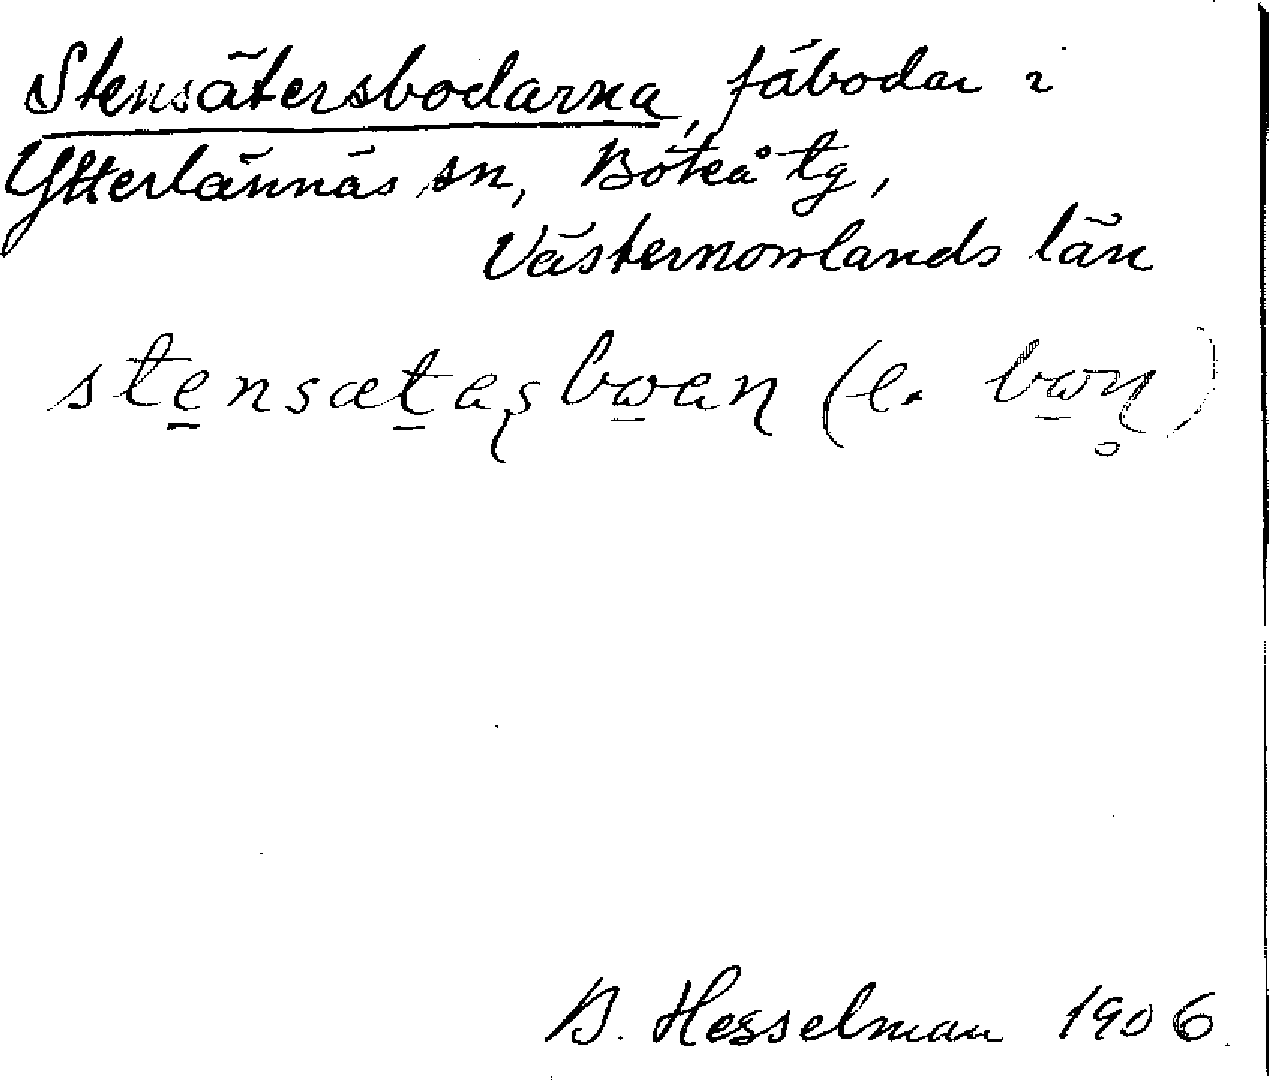 Stensätersbodarna, fäbodar i
Ytterlännäs sn, Boteå tg,
Västernorrlands län
stensætaʂbωaɳ (l. bωɳ̥)
B. Hesselman 1906.